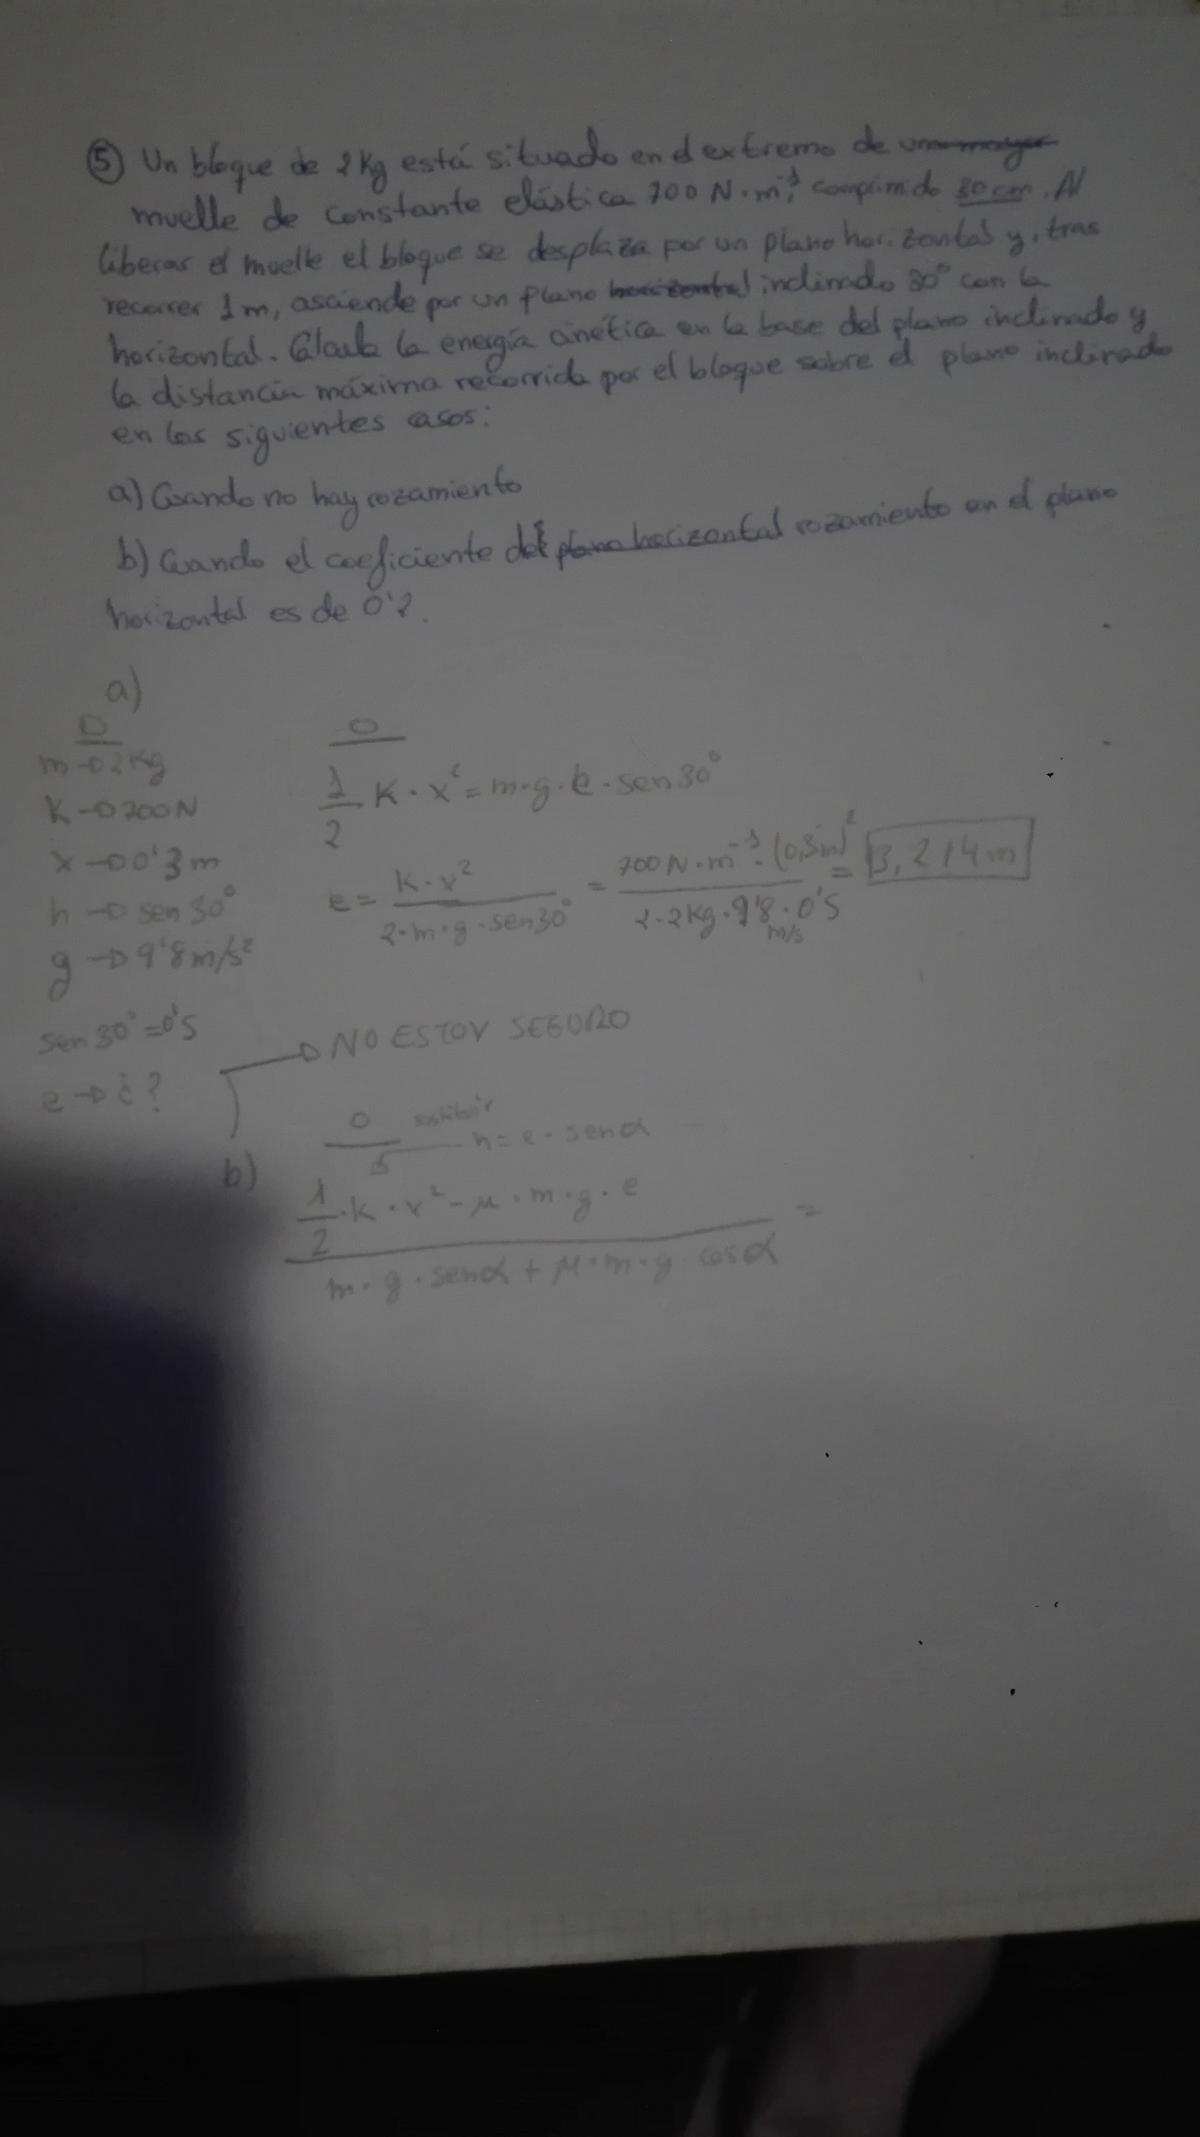 ⑤ Un bloque de 2Kg está situado en el extremo de un
muelle de constante elástica 700 N·m⁻¹, comprimido 30 cm. Al
liberar el muelle el bloque se desplaza por un plano horizontal y, tras
recorrer 1 m, asciende por un plano horizontal inclinado 30° con la
horizontal. Calcula la energía cinética en la base del plano inclinado y
la distancia máxima recorrida por el bloque sobre el plano inclinado
en los siguientes casos:
a) Cuando no hay rozamiento
b) Cuando el coeficiente del plano horizontal rozamiento en el plano
horizontal es de 0'2.
a)
D
m → 2Kg
K → 700N
x → 0'3m
h → sen30°
g → 9'8m/s²
sen30° = 0'5
e → ¿?
O
1/2 K · x² = m·g·e·sen30°
e = K·x² / 2·m·g·sen30° = 700N·m⁻¹·(0,3m)² / 2·2Kg·9'8·0'5 = 3,214m
m/s
→ NO ESTOY SEGURO
O sustituir
h = e · senα
b) 1/2 · K · x² - μ · m · g · e / m · g · senα + μ · m · g · cosα =